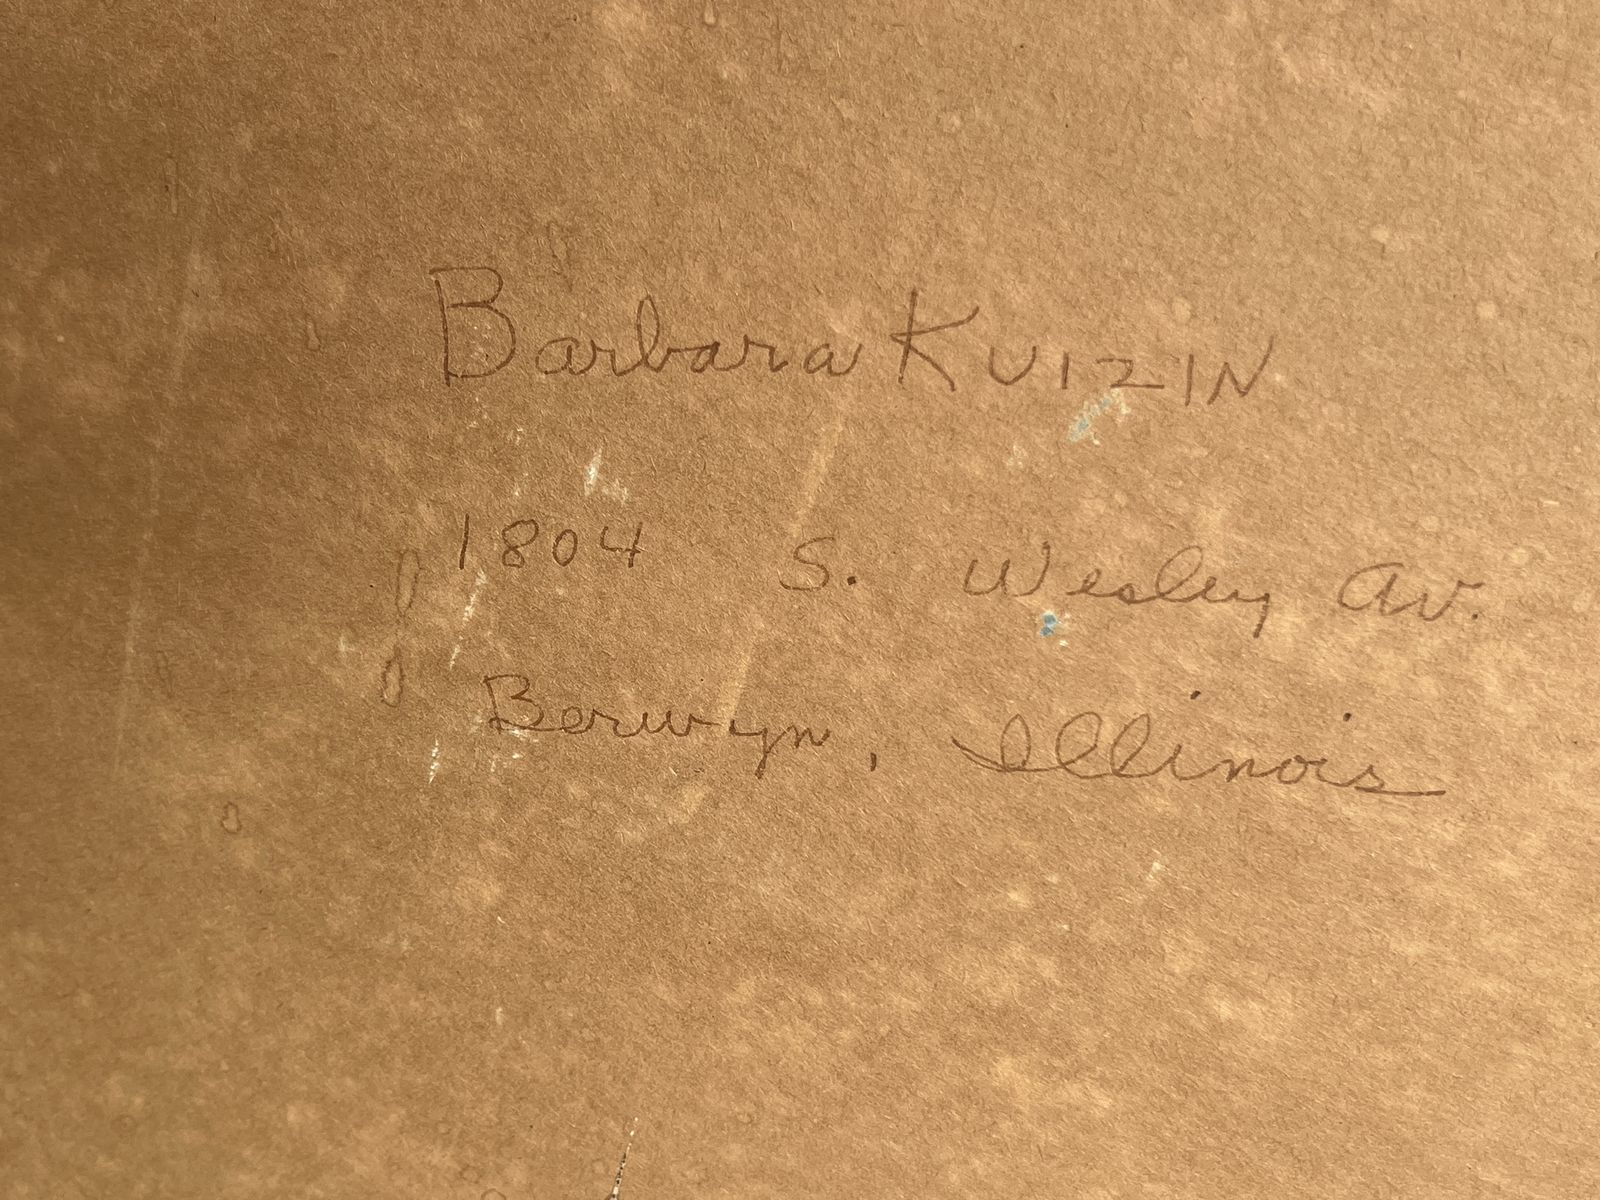 Barbara KUIZIN
1804 S. Wesley Av.
Berwyn, Illinois